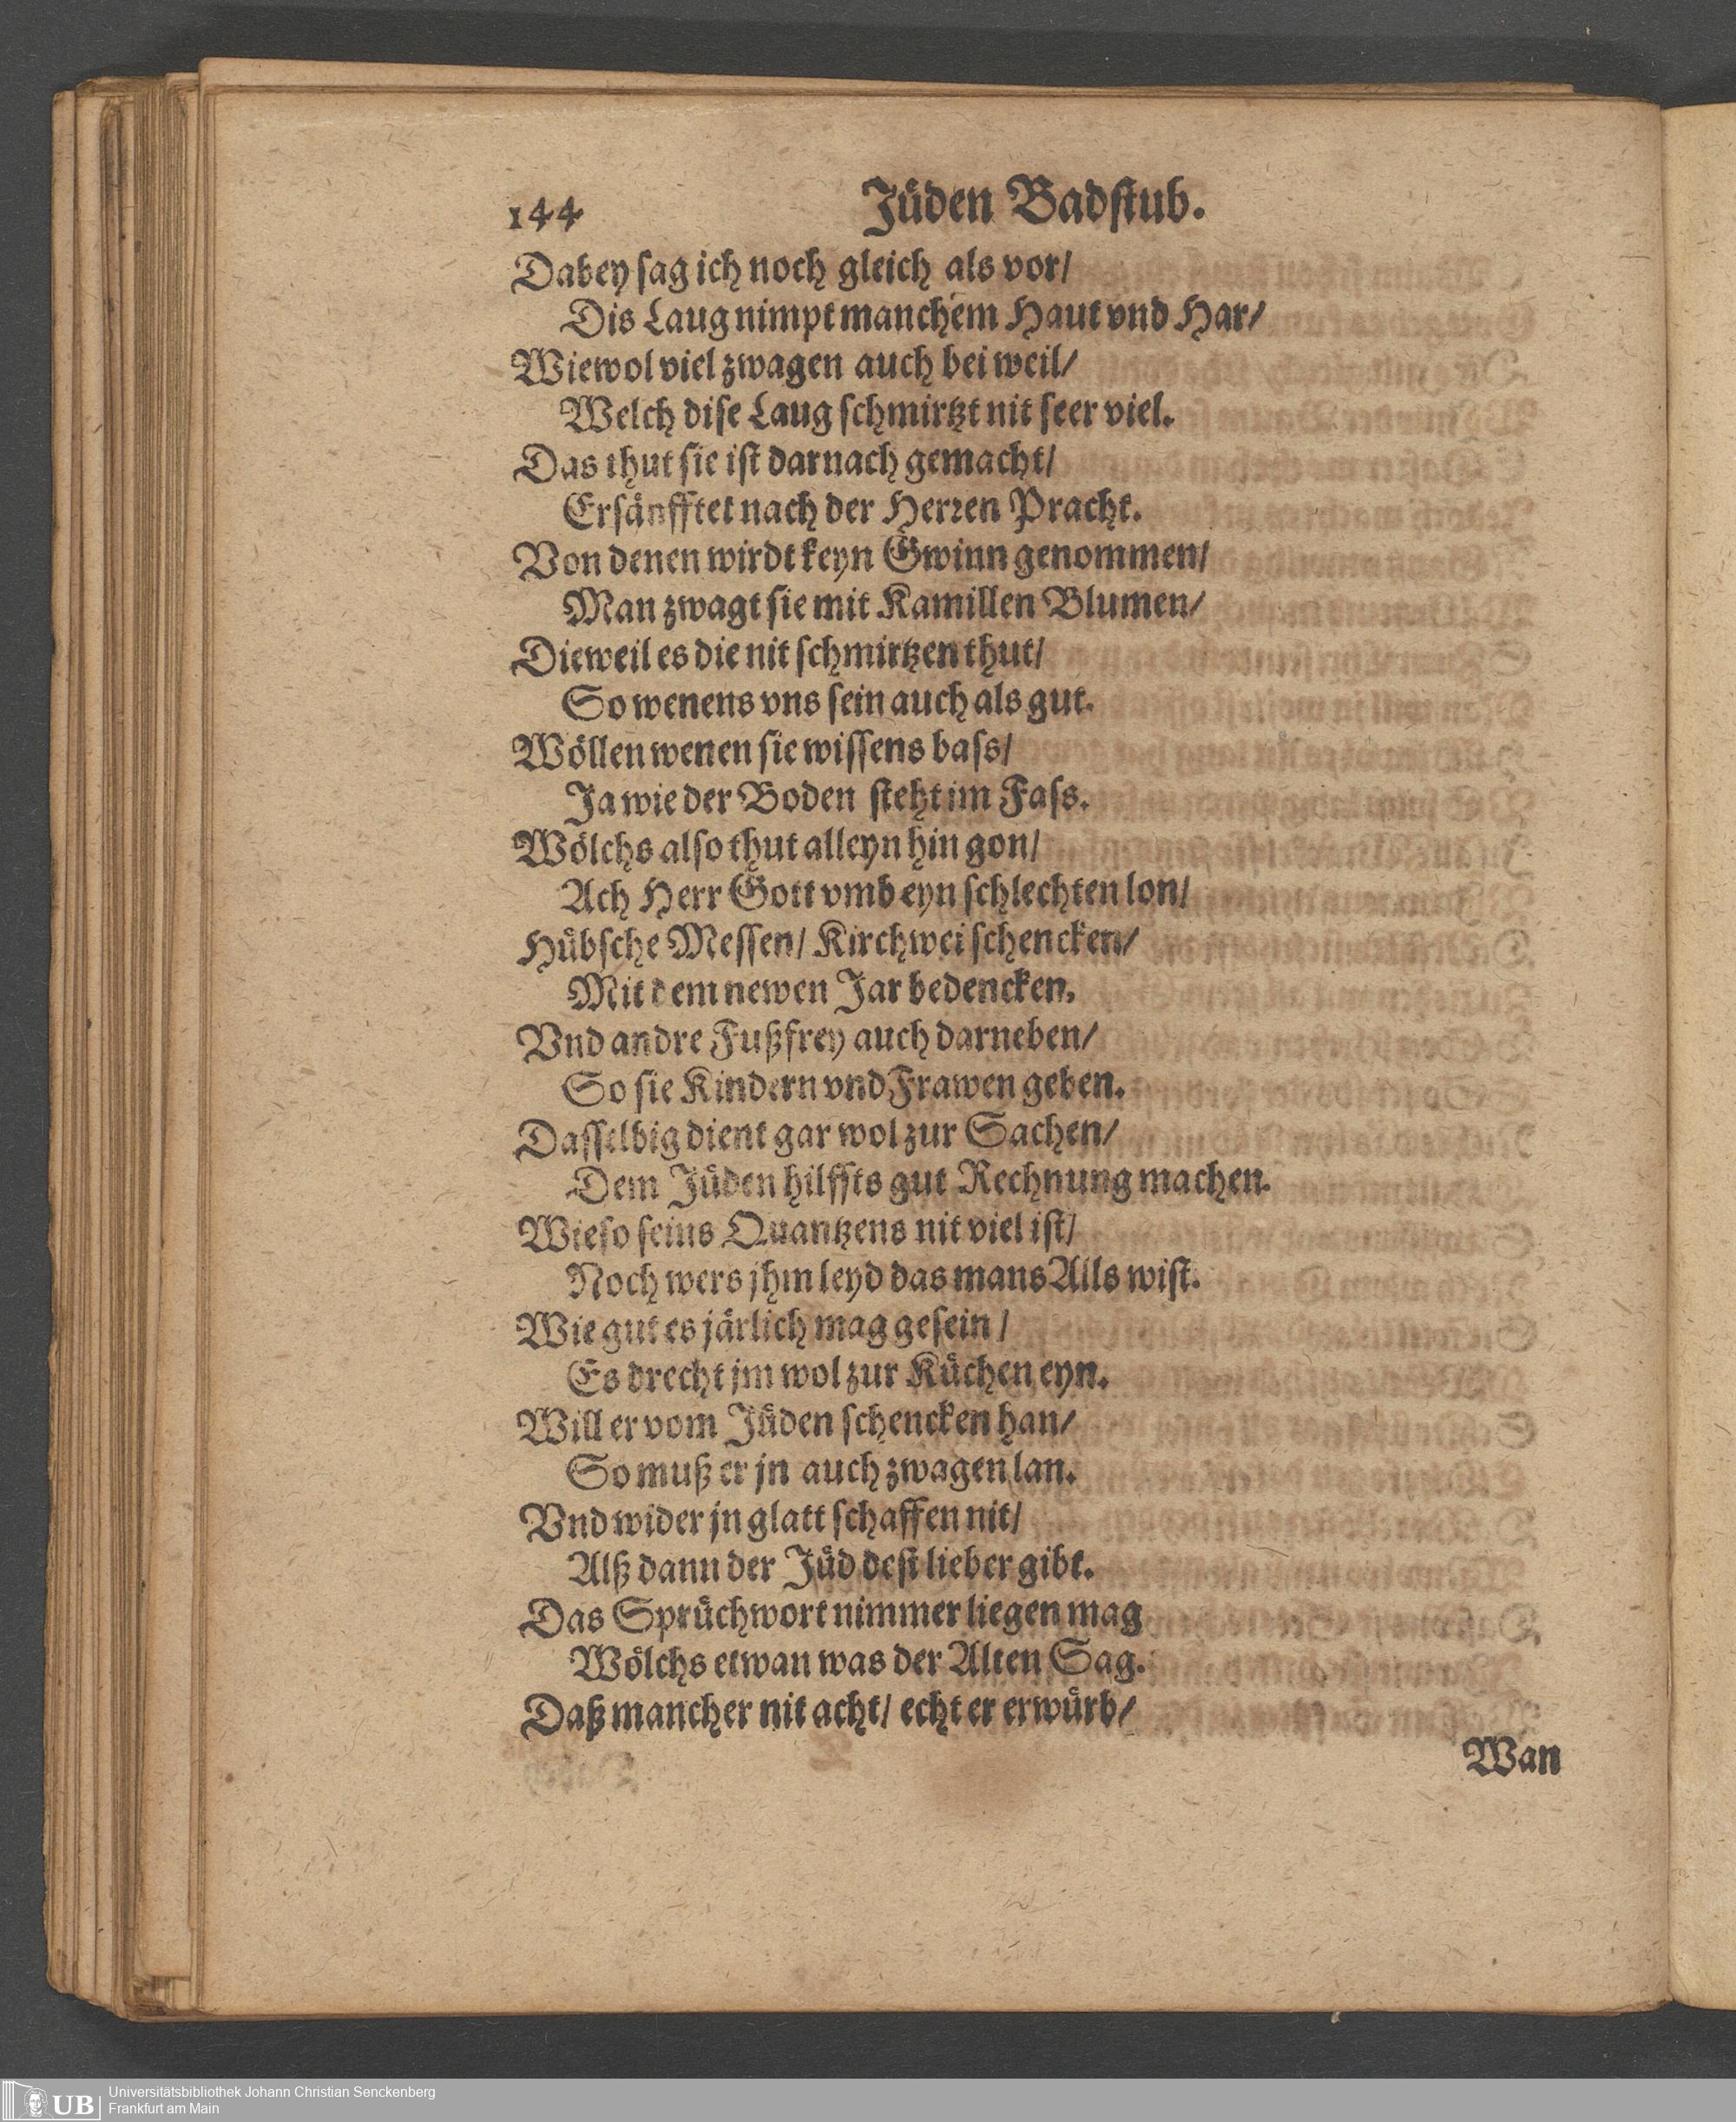 144 Jüden Badstub.
Dabey sag ich noch gleich als vor/
Dis Laug nimpt manchem Haut vnd Har/
Wiewol viel zwagen auch bei weil/
Welch dise Laug schmirtzt nit seer viel.
Das thut sie ist darnach gemacht/
Ersänfftet nach der Herren Pracht.
Von denen wirdt keyn Gwinn genommen/
Man zwagt sie mit Kamillen Blumen/
Dieweil es die nit schmirtzen thut/
So wenens vns sein auch als gut.
Wöllen wenen sie wissens bass/
Ja wie der Boden steht im Fass.
Wölchs also thut alleyn hin gon/
Ach Herr Gott vmb eyn schlechten lon/
Hübsche Messen/ Kirchwei schencken/
Mit dem newen Jar bedencken.
Vnd andre Fußfrey auch darneben/
So sie Kindern vnd Frawen geben.
Dasselbig dient gar wol zur Sachen/
Dem Jüden hilffts gut Rechnung machen.
Wieso seins Quantzens nit viel ist/
Noch wers jhm leyd das mans Alls wist.
Wie gut es järlich mag gesein/
Es drecht jm wol zur Küchen eyn.
Will er vom Jüden schencken han/
So muß er jn auch zwagen lan.
Vnd wider jn glatt schaffen nit/
Alß dann der Jüd dest lieber gibt.
Das Sprüchwort nimmer liegen mag
Wölchs etwan was der Alten Sag.
Daß mancher nit acht/ echt er erwürb/
Wan
UB Universitätsbibliothek Johann Christian Senckenberg
Frankfurt am Main